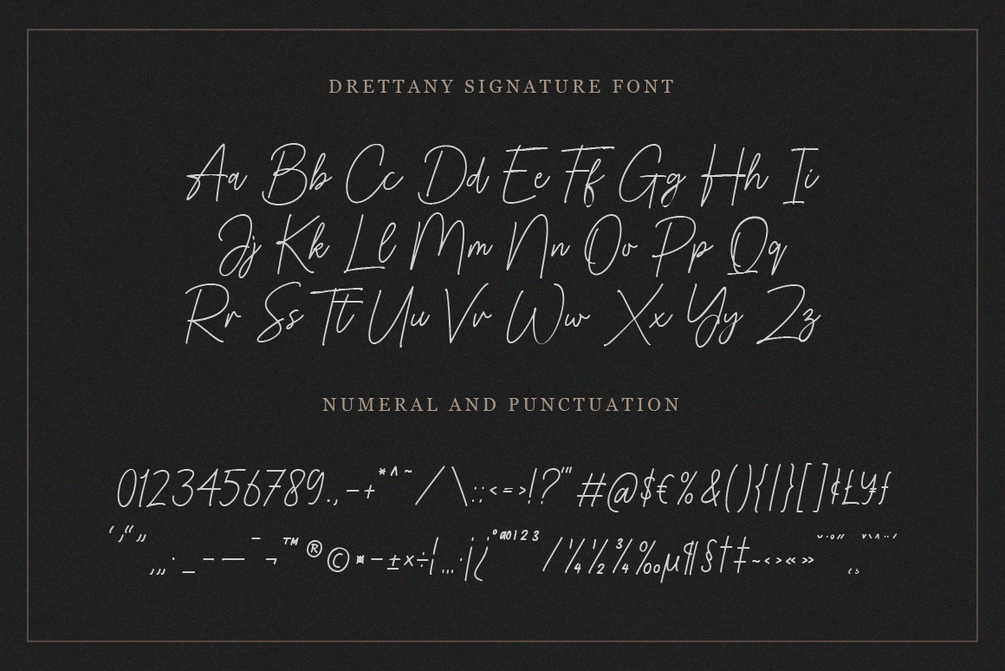 DRETTANY SIGNATURE FONT
Aa Bb Cc Dd Ee Ff Gg Hh Ii
Jj Kk Ll Mm Nn Oo Pp Qq
Rr Ss Tt Uu Vv Ww Xx Yy Zz
NUMERAL AND PUNCTUATION
0123456789.,-+*^~/\:;<=>!?'"#@$€%&(){|}[]¢£¥ƒ
‘’“”‚„·_–—¯¬™®©¤-±×÷¦…·¡¿ºª0123/¼½¾‰µ¶§†‡~‹›«»